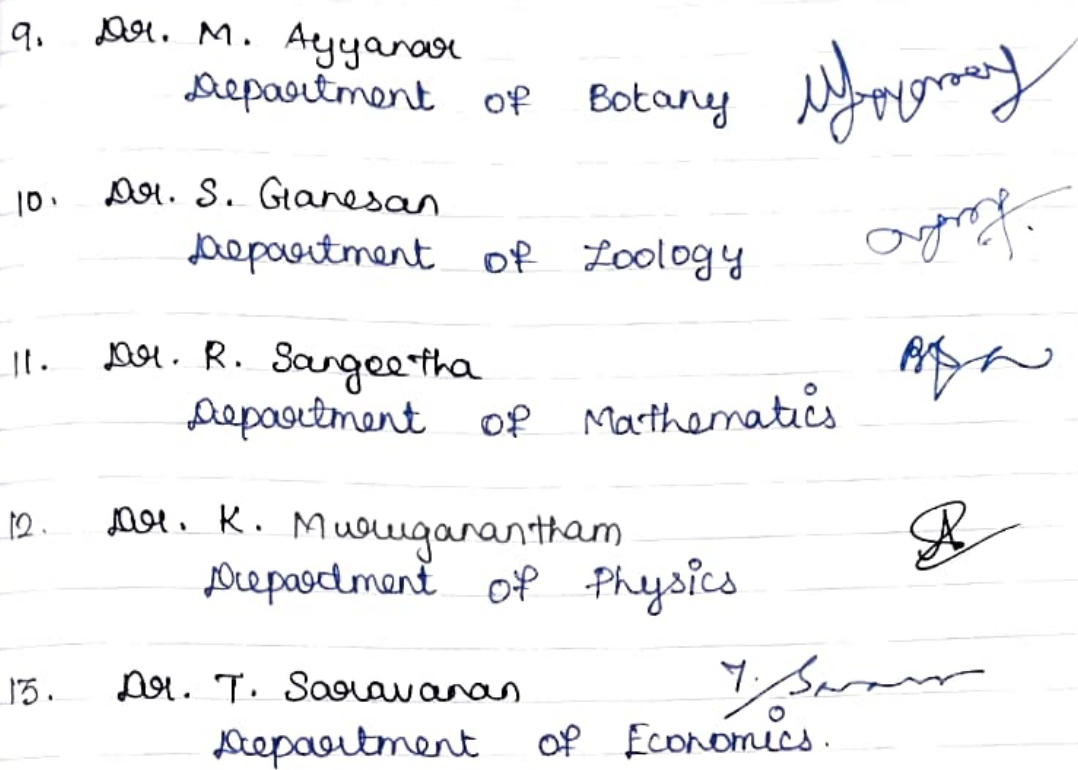 9. Dr. M. Ayyanar
Department of Botany
10. Dr. S. Ganesan
Department of Zoology
11. Dr. R. Sangeetha
Department of Mathematics
12. Dr. K. Muruganantham
Department of Physics
13. Dr. T. Saravanan
T. Saravanan
Department of Economics.